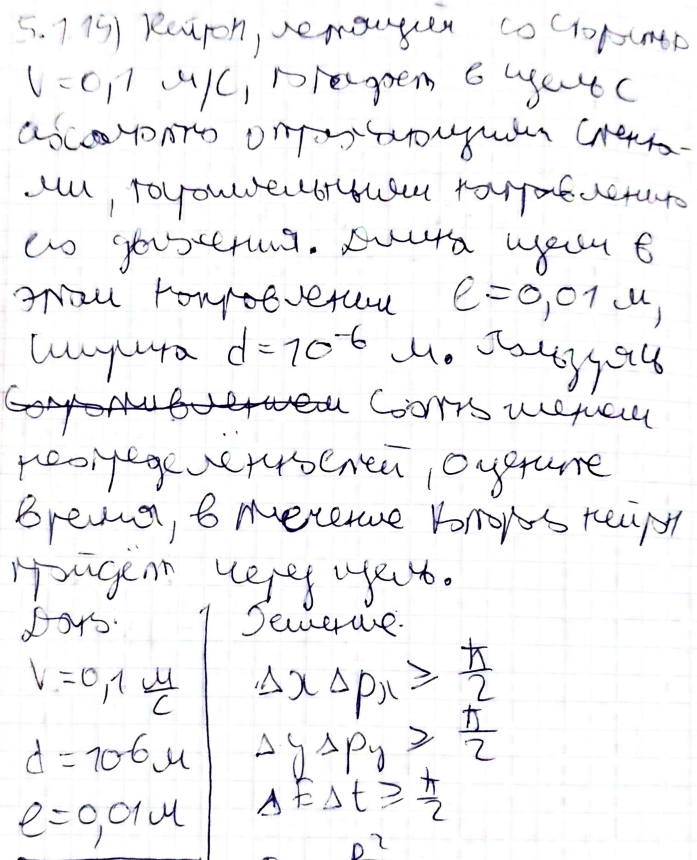 5.1.15) Нейрон, летящий со скоростью
V=0,1 м/с, попадает в щель с
абсолютно отражающими стенка-
ми, параллельными направлению
его движения. Длина щели в
этом направлении ℓ=0,01 м,
ширина d=10⁻⁶ м. Пользуясь
соотношением
неопределённостей, оцените
время, в течение которого нейрон
пройдёт через щель.
Дано:
V=0,1 м/с
d=10-6 м
ℓ=0,01 м
Решение:
Δx Δpx ≥ ħ/2
Δy Δpy ≥ ħ/2
ΔE Δt ≥ ħ/2
p²